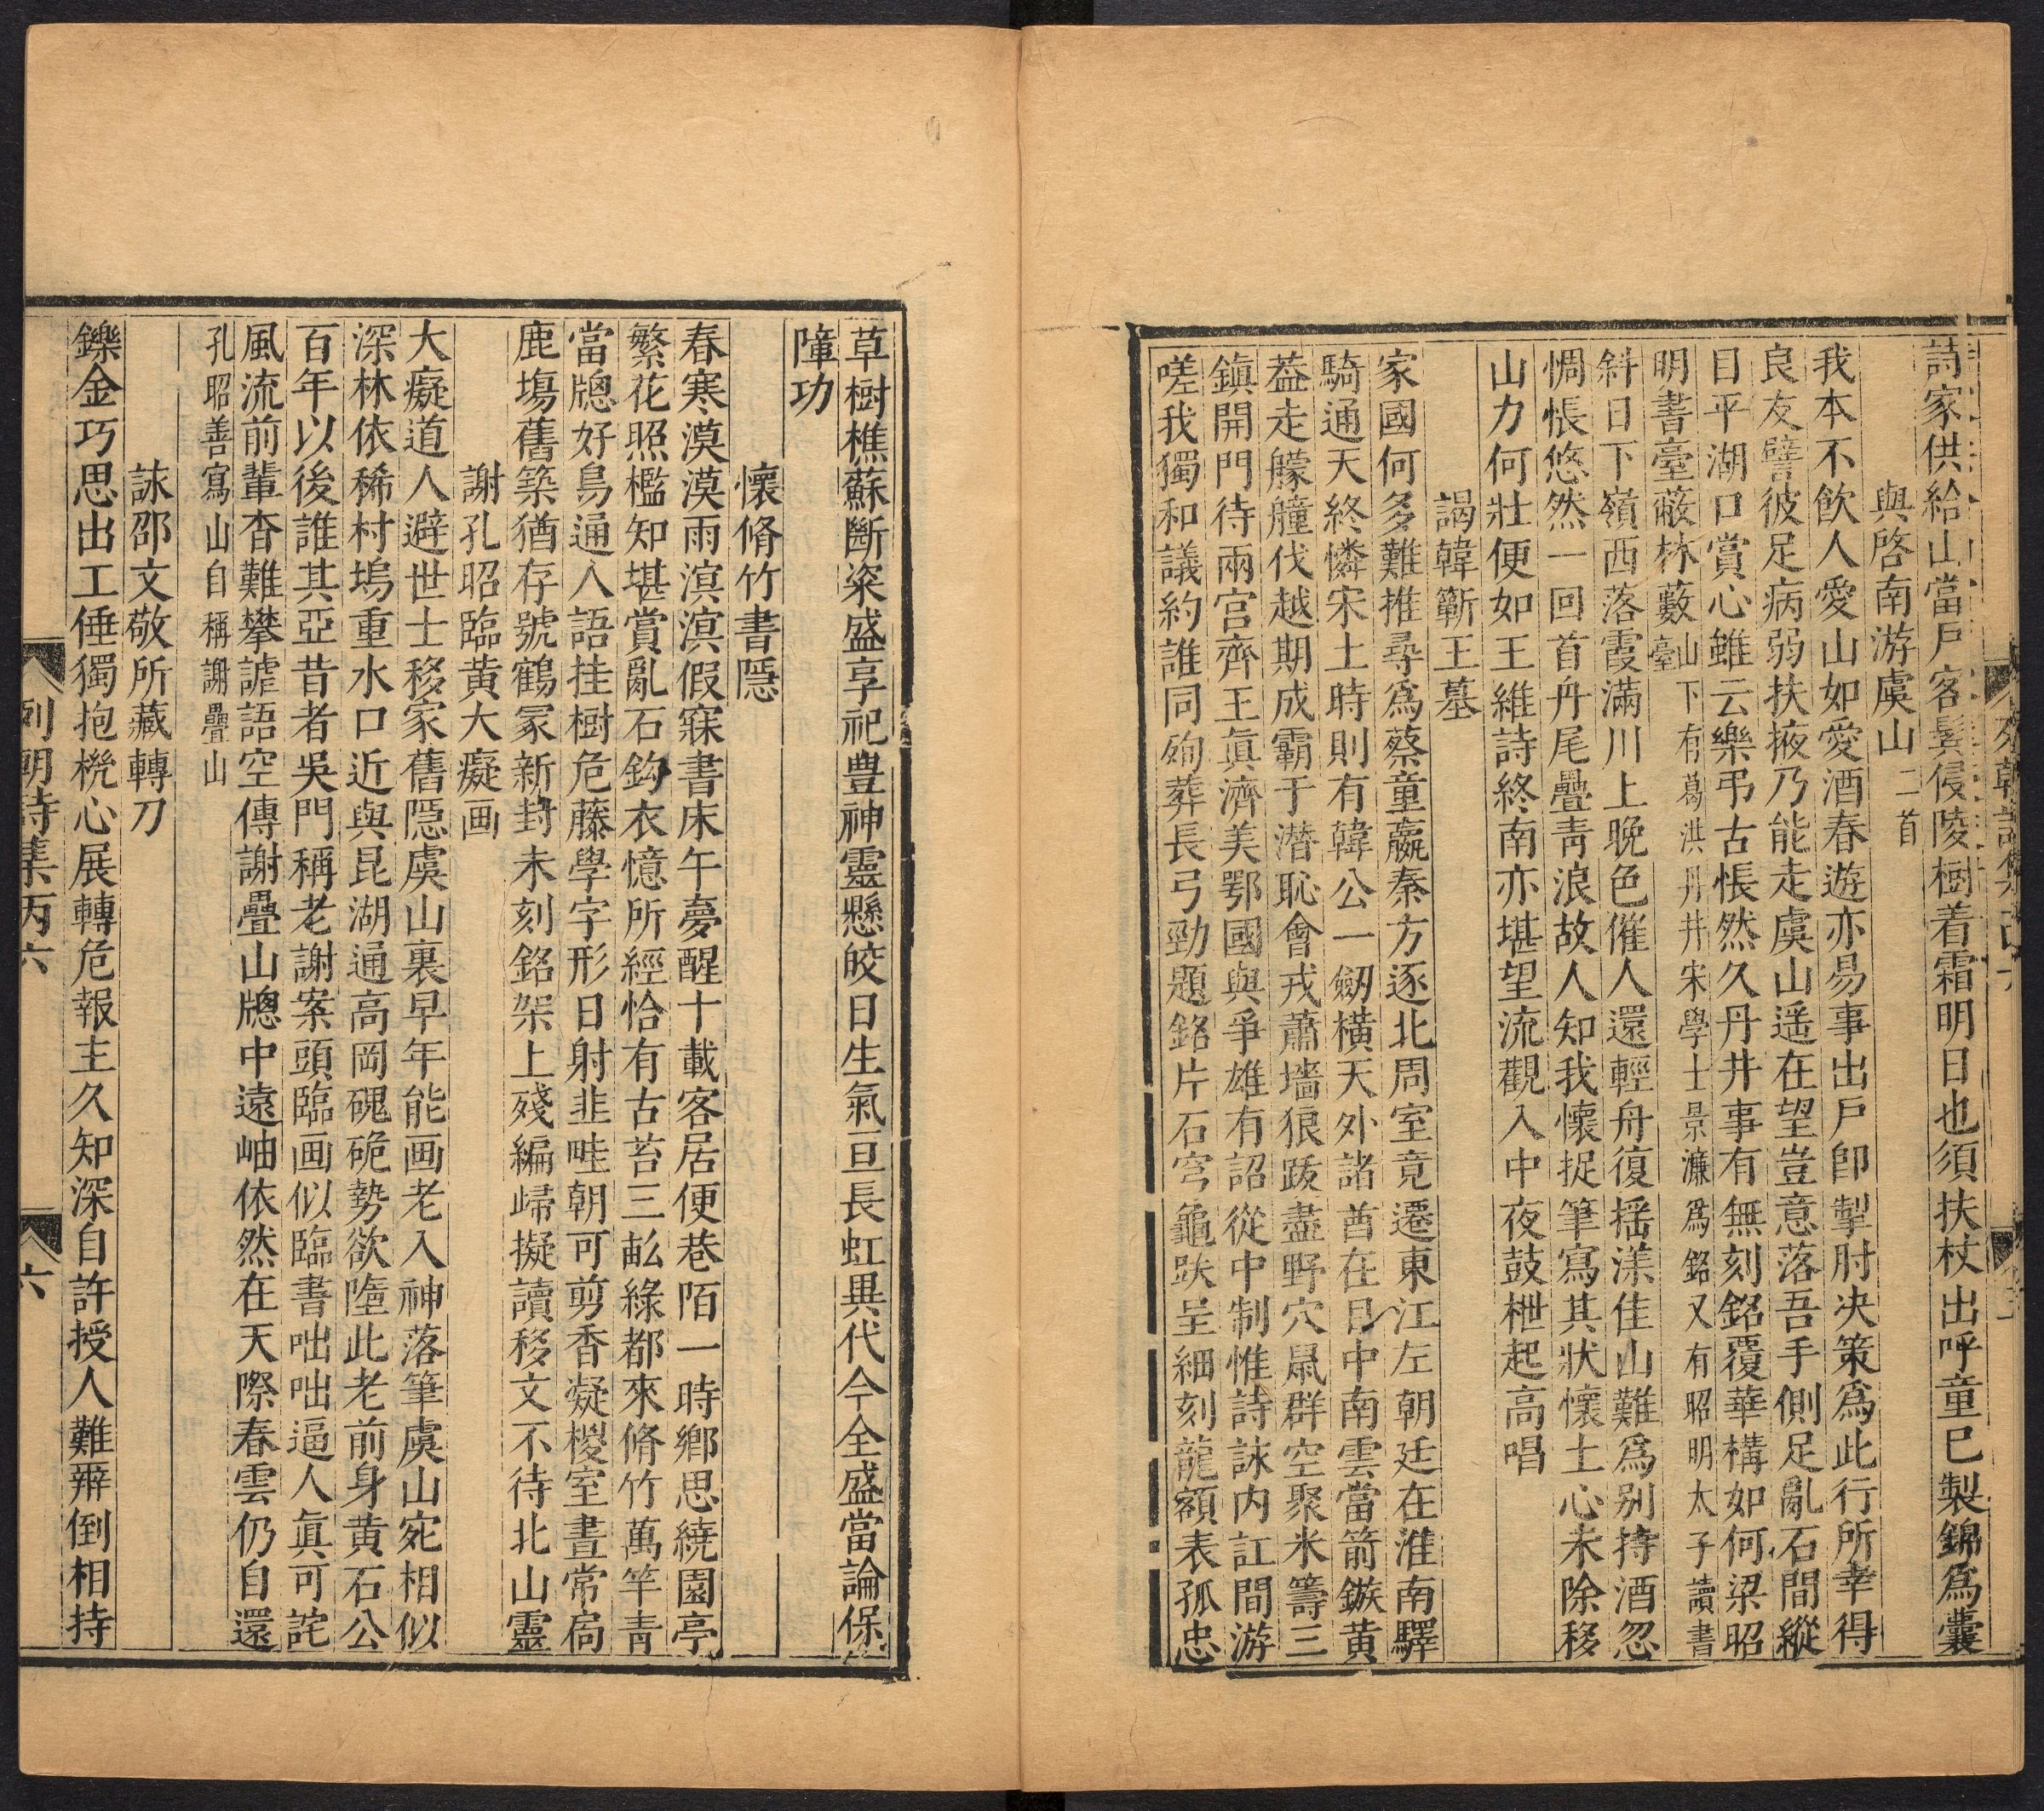 詩家供給山當戶客鬂侵陵樹着霜明日也須扶杖出呼童已製錦爲囊
與啓南游虞山二首
我本不飲人愛山如愛酒春遊亦易事出戶卽掣肘决策爲此行所幸得
良友譬彼足病弱扶掖乃能走虞山遥在望豈意落吾手側足亂石間縱
目平湖口賞心雖云樂弔古悵然久丹井事有無刻銘覆華構如何梁昭
明書臺蔽林藪山下有葛洪丹井宋學士景濂爲銘又有昭明太子讀書臺
斜日下嶺西落霞滿川上晚色催人還輕舟復摇漾佳山難爲别持酒忽
惆悵悠然一回首舟尾疊青浪故人知我懷捉筆寫其狀懷土心未除移
山力何壯便如王維詩終南亦堪望流觀入中夜鼓枻起高唱
謁韓蘄王墓
家國何多難推尋爲蔡童嬴秦方逐北周室竟遷東江左朝廷在淮南驛
騎通天終憐宋土時則有韓公一劒橫天外諸酋在目中南雲當箭鏃黄
葢走艨艟伐越期成霸于潛恥會戎蕭墻狼跋盡野穴鼠群空聚米籌三
鎮開門待兩宫齊王眞濟美鄂國與爭雄有詔從中制惟詩誅内訌間游
嗟我獨和議約誰同殉葬長弓勁題銘片石穹龜趺呈細刻龍額表孤忠
草樹樵蘇斷粢盛享祀豊神靈懸皎日生氣亘長虹異代今全盛當論保
障功
懷脩竹書隱
春寒漠漠雨溟溟假寐書床午夣醒十載客居便巷陌一時鄉思繞園亭
繁花照檻知堪賞亂石鈎衣憶所經恰有古苔三畝綠都來脩竹萬竿青
當牎好鳥通入語挂樹危藤學字形日射韭畦朝可剪香凝椶室晝常扃
鹿塲舊築猶存號鶴冡新封未刻銘架上殘編歸擬讀移文不待北山靈
謝孔昭臨黄大癡画
大癡道人避世士移家舊隱虞山裏早年能画老入神落筆虞山宛相似
深林依稀村塢重水口近與昆湖通高岡磈硊勢欲墮此老前身黄石公
百年以後誰其亞昔者吳門稱老謝案頭臨画似臨書咄咄逼人眞可詫
風流前輩杳難攀謔語空傳謝疊山牎中遠岫依然在天際春雲仍自還
孔昭善寫山自稱謝疊山
詠邵文敬所藏轉刀
鑠金巧思出工倕獨抱㭘心展轉危報主久知深自許授人難辨倒相持
列朝詩集丙六
六